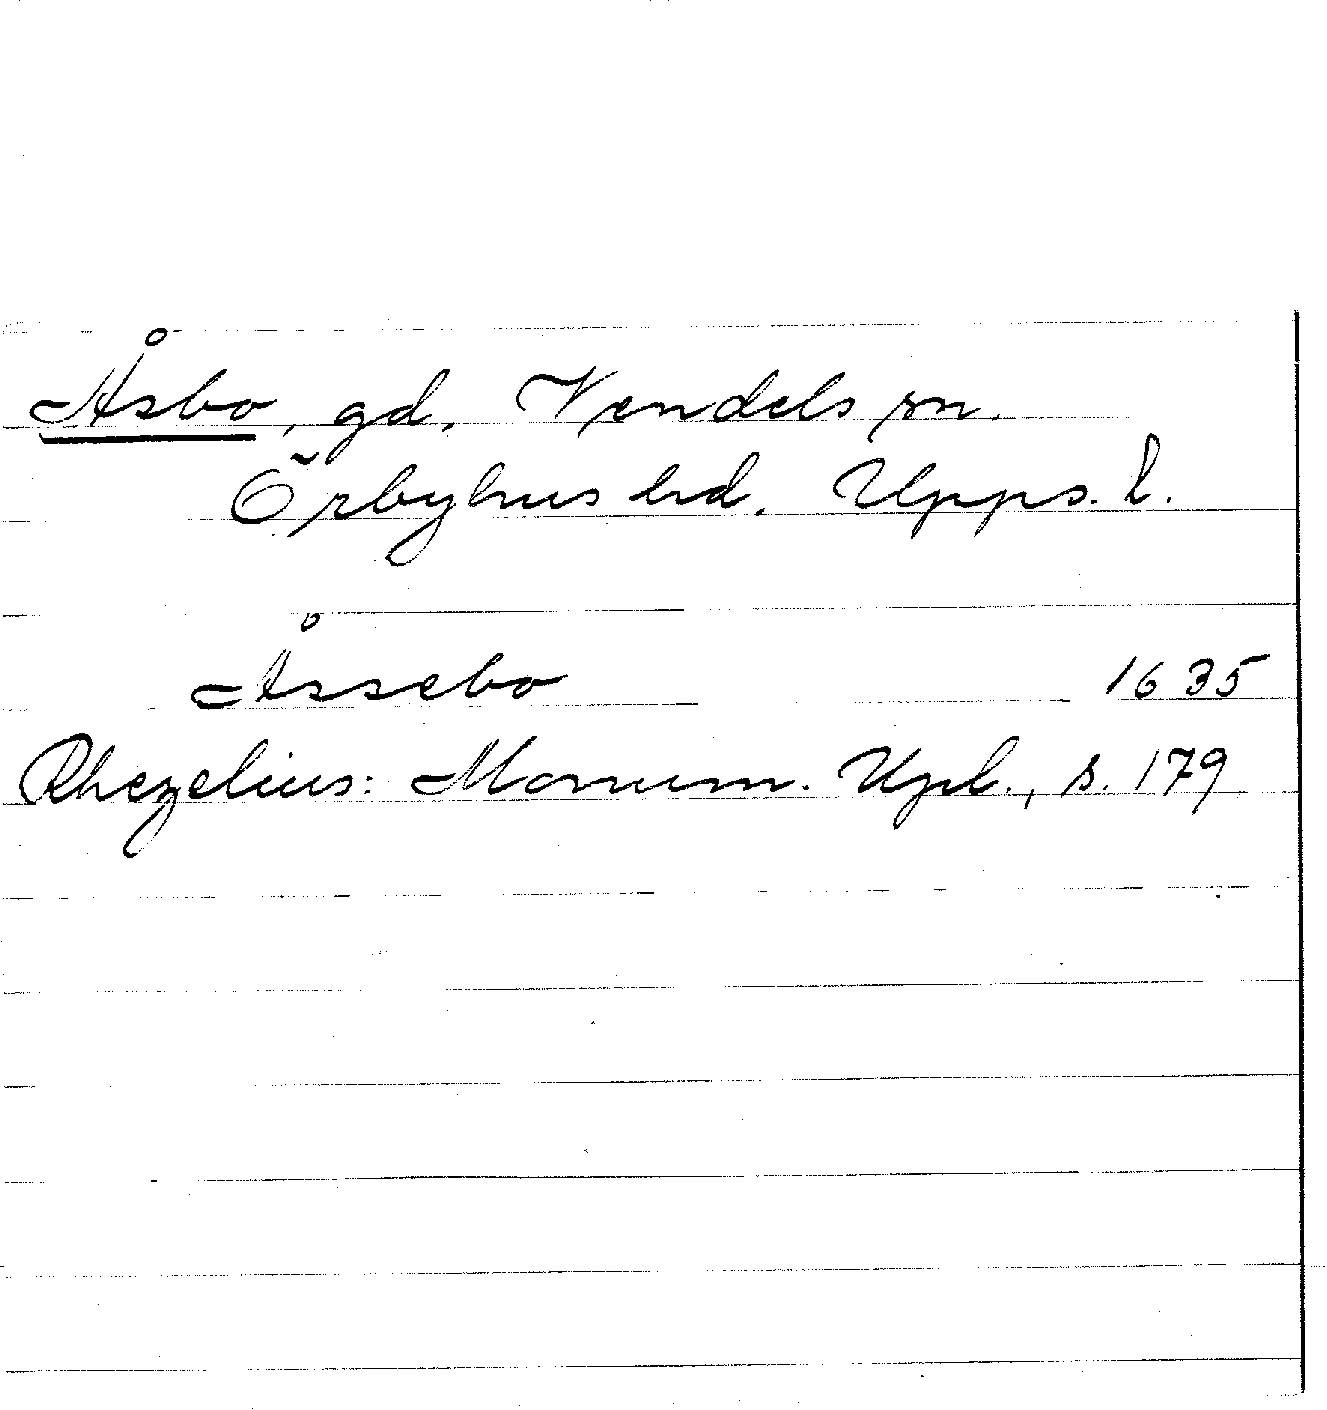 Åsbo, gd, Vendels sn.
Örbyhus hd. Upps. l.
Åssebo 1635
Rhezelius: Monum. Upl., s. 179